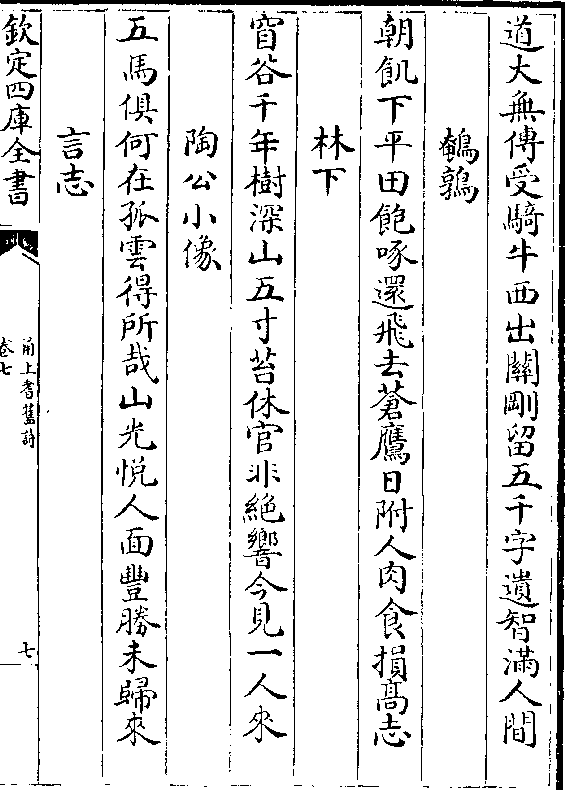 道大無傳受騎牛西出關剛留五千字遺智滿人間
鵪鶉
朝飢下平田飽啄還飛去蒼鷹日附人肉食損髙志
林下
窅谷千年樹深山五寸苔休官非絶響今見一人來
陶公小像
五馬俱何在孤雲得所哉山光悅人面豐勝未歸來
言志
欽定四庫全書
甬上耆舊詩
卷七
七